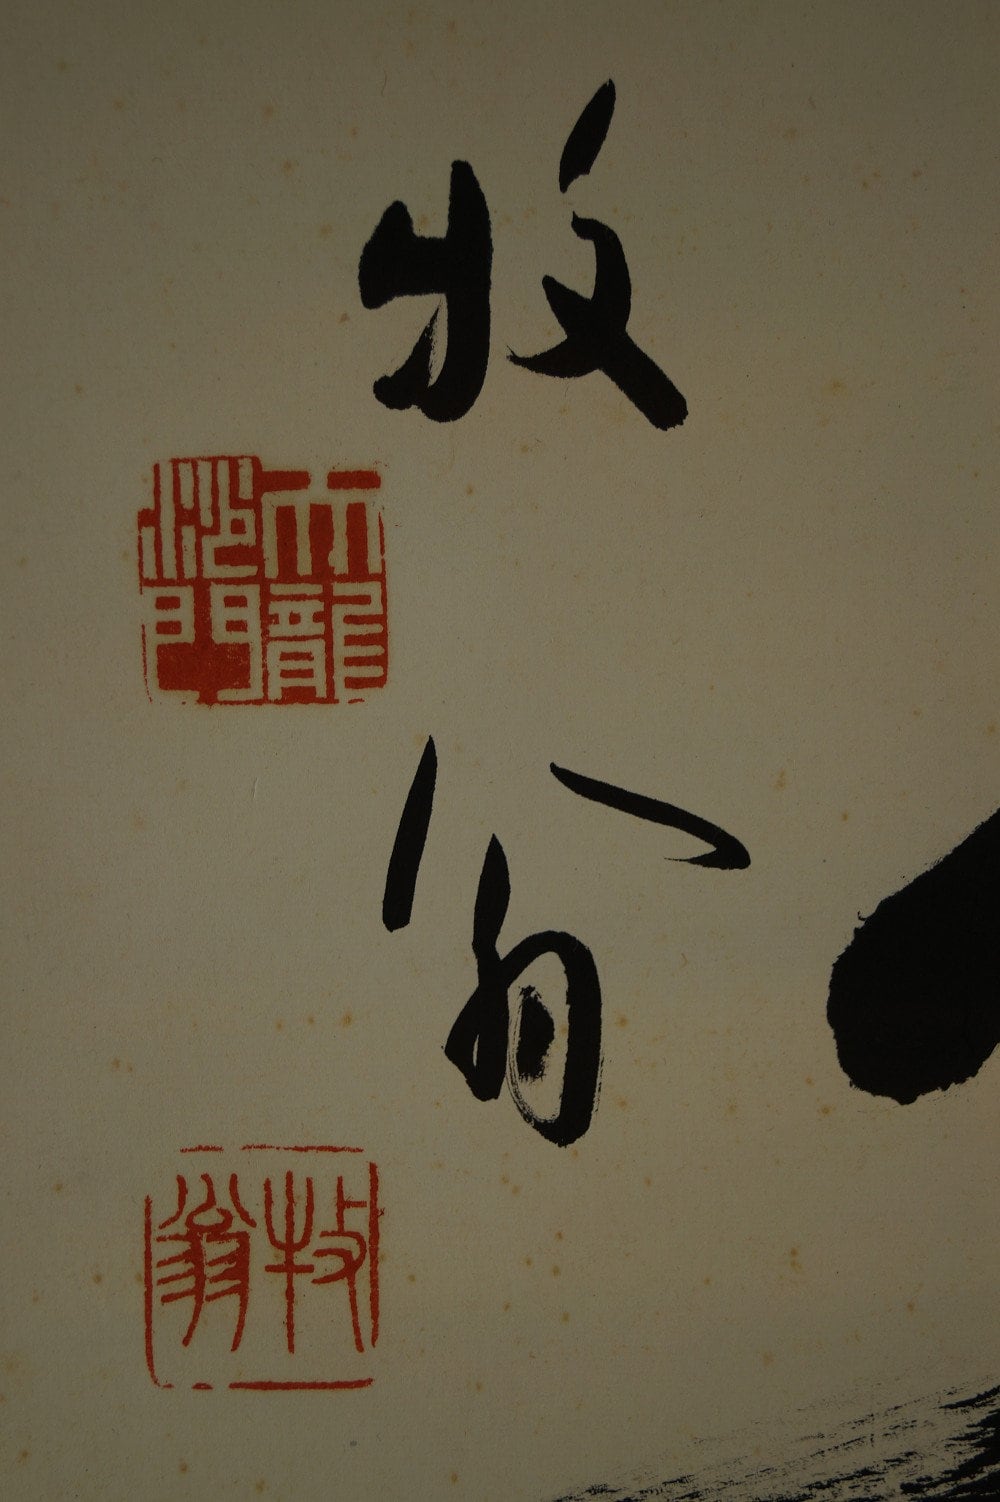 牧翁
天龍
沙門
牧翁